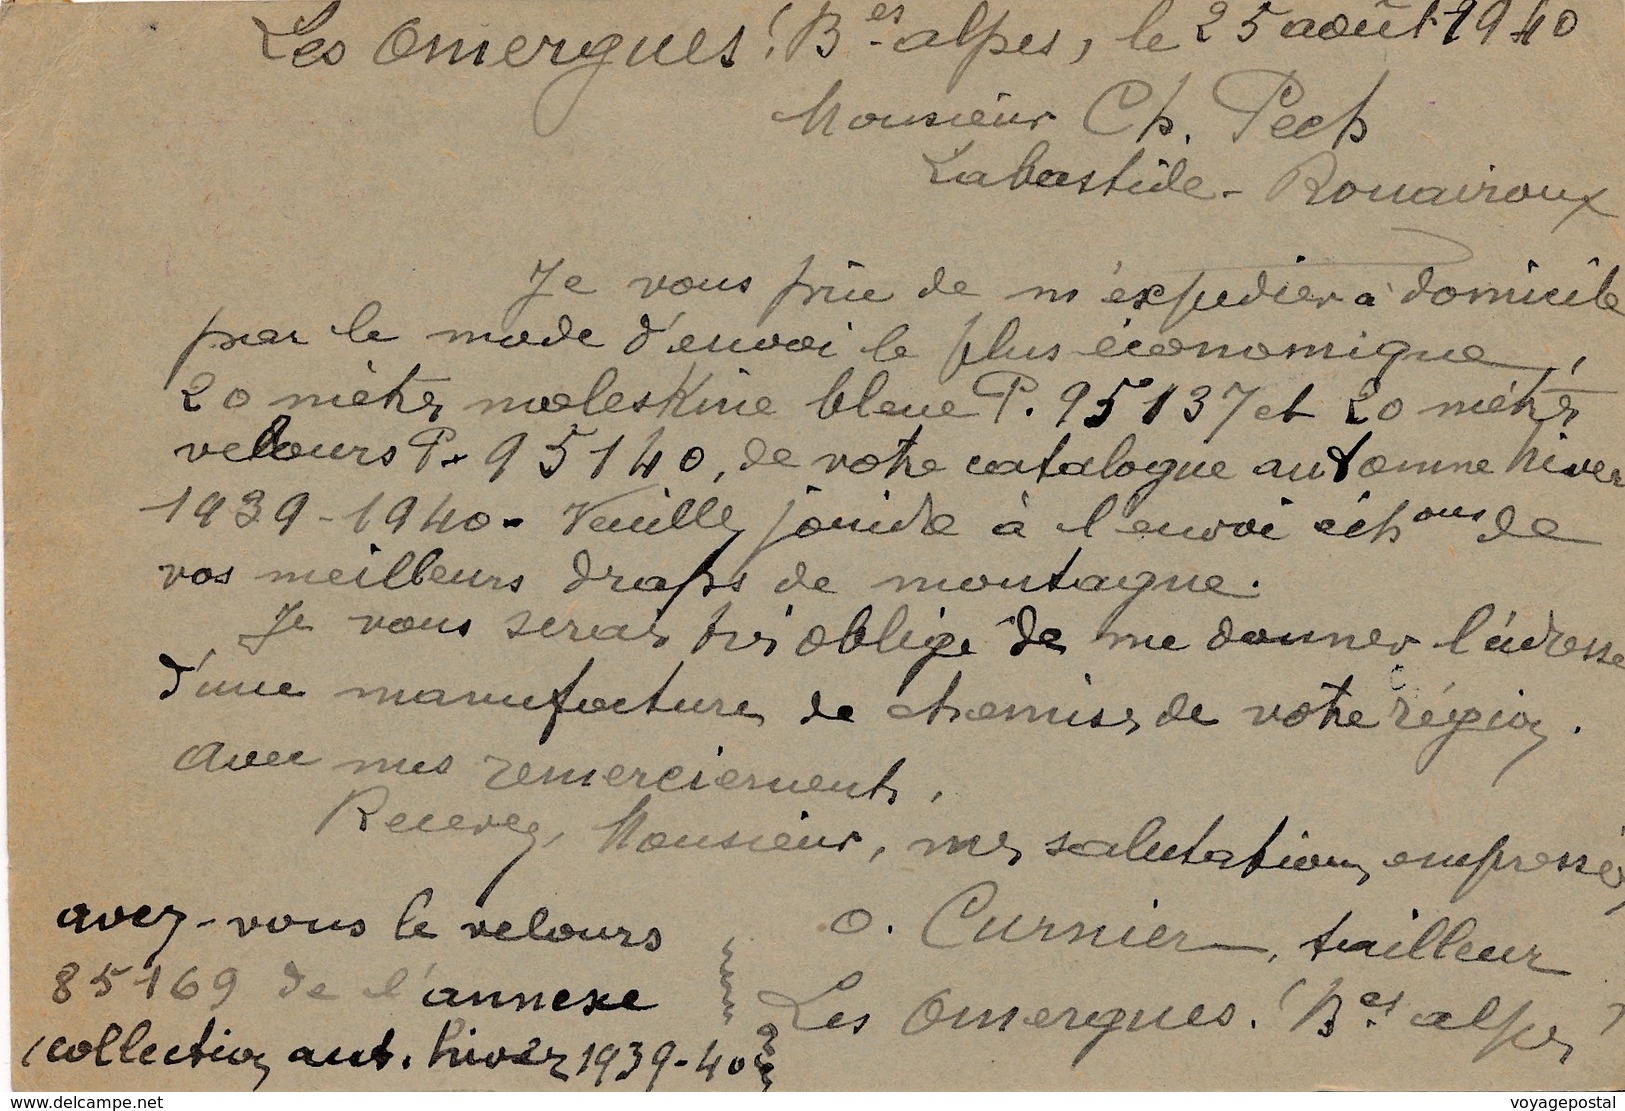 Les Omergues (B.es alpes, le 25 août 1940
Monsieur Ch. Pech
Labastide-Rouairoux
Je vous prie de m'expedier à domicile
par le mode d'envoi le plus économique,
20 mètres moleskine bleue P. 95137 et 20 mètres
velours P. 95140, de votre catalogue automne hiver
1939-1940. Veuillez joindre à l'envoi échons de
vos meilleurs draps de montagne.
Je vous serais très obligé de me donner l'adresse
d'une manufacture de chemises de votre région.
Avec mes remerciements,
Recevez, Monsieur, mes salutations empressées
O. Curnier, tailleur
Les Omergues. (B.es alpes)
avez-vous le velours
85169 de l'annexe
(collection aut. hiver 1939-40
www.delcampe.net
voyagepostal